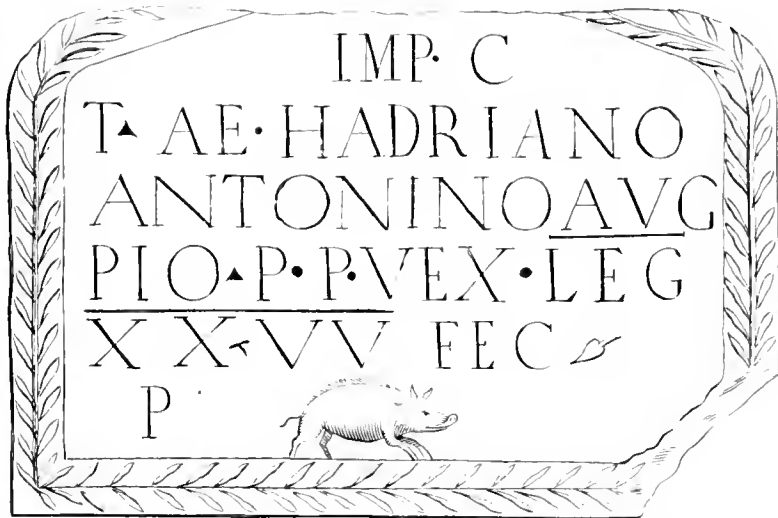 IMP· C
T▴ AE· HADRIANO
ANTONINO AVG
PIO▴P·P·VEX·LEG
XX VV FEC
P